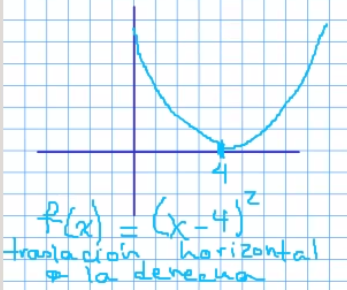 4
f(x) = (x-4)²
traslación horizontal
a la derecha